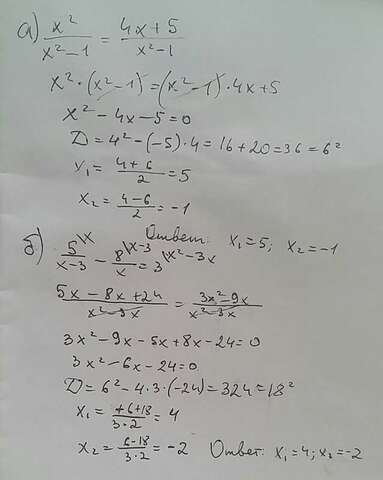 а) x²/(x²-1) = (4x+5)/(x²-1)
x²·(x²-1) = (x²-1)·4x+5
x²-4x-5=0
D=4²-(-5)·4=16+20=36=6²
x₁=(4+6)/2=5
x₂=(4-6)/2=-1
Ответ: x₁=5; x₂=-1
б) 5\x/(x-3) - 8\x-3/x = 3\x²-3x
(5x-8x+24)/(x²-3x) = (3x²-9x)/(x²-3x)
3x²-9x-5x+8x-24=0
3x²-6x-24=0
D=6²-4·3·(-24)=324=18²
x₁=(+6+18)/(3·2)=4
x₂=(6-18)/(3·2)=-2 Ответ: x₁=4; x₂=-2